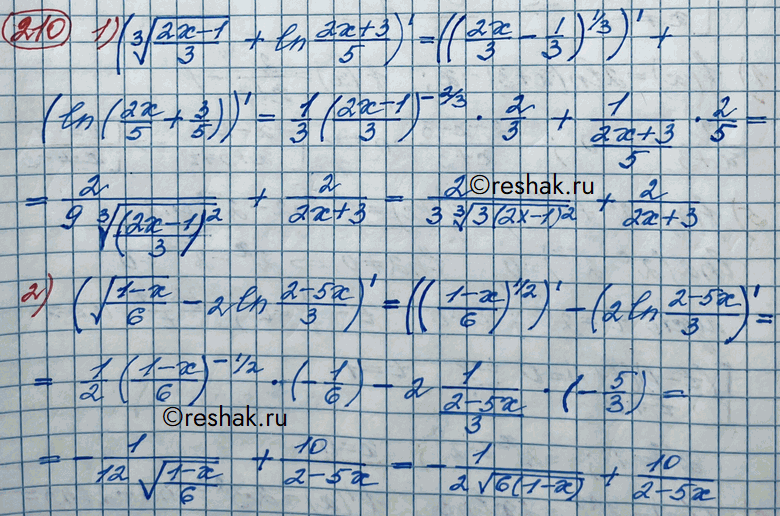 210 1) (∛((2x-1)/3) + ln (2x+3)/5)' = ((2x/3 - 1/3)^(1/3))' +
(ln(2x/5 + 3/5))' = 1/3 ((2x-1)/3)^(-2/3) · 2/3 + 1/((2x+3)/5) · 2/5 =
= 2/(9 ∛((2x-1)²/3)) + 2/(2x+3) = 2/(3 ∛(3(2x-1)²)) + 2/(2x+3)
©reshak.ru
2) (√((1-x)/6) - 2 ln (2-5x)/3)' = (((1-x)/6)^(1/2))' - (2 ln (2-5x)/3)' =
= 1/2 ((1-x)/6)^(-1/2) · (-1/6) - 2 1/((2-5x)/3) · (-5/3) =
©reshak.ru
= - 1/(12 √((1-x)/6)) + 10/(2-5x) = - 1/(2 √(6(1-x))) + 10/(2-5x)